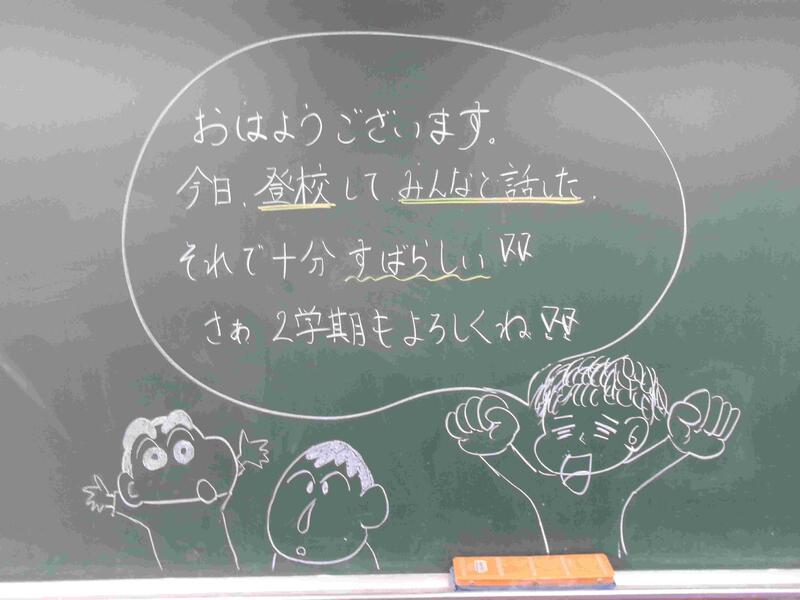 おはようございます。
今日、登校してみんなと話した。
それで十分すばらしい!!
さぁ2学期もよろしくね!!